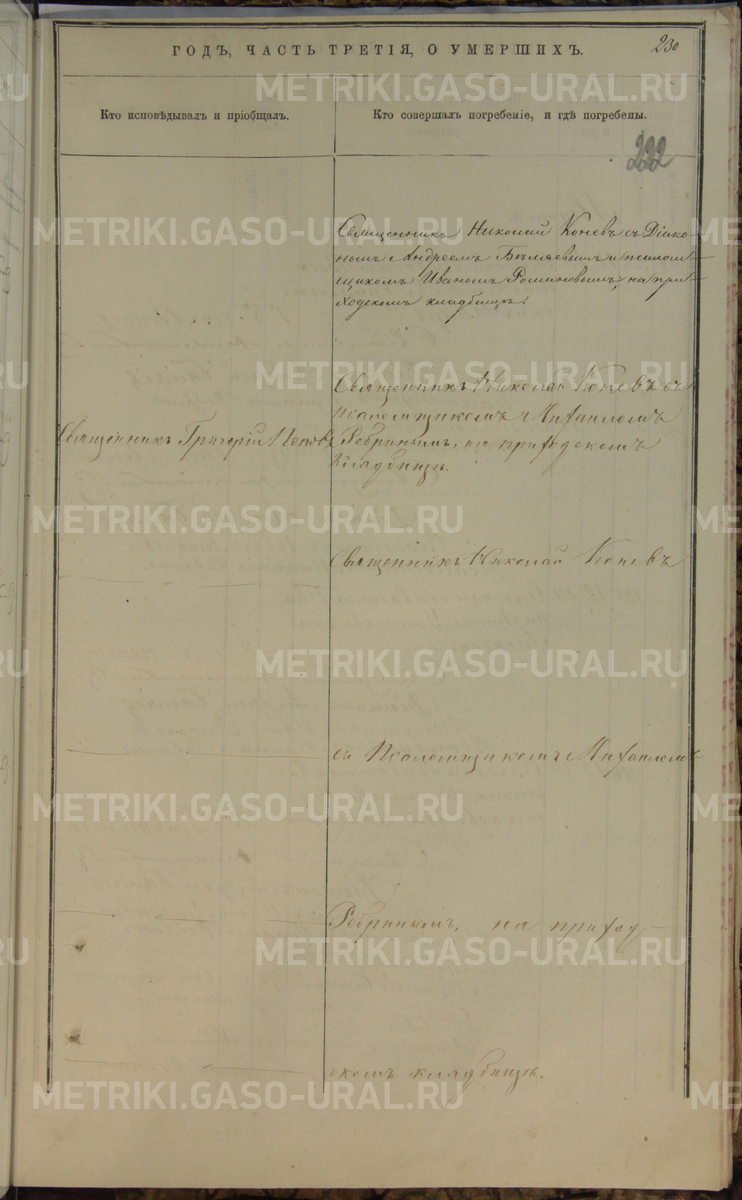 ГОДЪ, ЧАСТЬ ТРЕТІЯ, О УМЕРШИХЪ.
230
Кто исповѣдывалъ и пріобщалъ.
Кто совершалъ погребеніе, и гдѣ погребены.
222
Священникъ Николай Коневъ съ Діако-
номъ Андреемъ Бѣляевымъ и псалом-
щикомъ Иваномъ Романовымъ, на при-
ходскомъ кладбищѣ.
Священникъ Григорій Поповъ
Священникъ Николай Коневъ съ
псаломщикомъ Михаиломъ
Ребринымъ, на приходскомъ
кладбищѣ.
Священникъ Николай Коневъ
съ Псаломщикомъ Михаиломъ
Ребринымъ, на приход-
скомъ кладбищѣ.
METRIKI.GASO-URAL.RU
METRIKI.GASO-URAL.RU
METRIKI.GASO-URAL.RU
METRIKI.GASO-URAL.RU
METRIKI.GASO-URAL.RU
METRIKI.GASO-URAL.RU
METRIKI.GASO-URAL.RU
METRIKI.GASO-URAL.RU